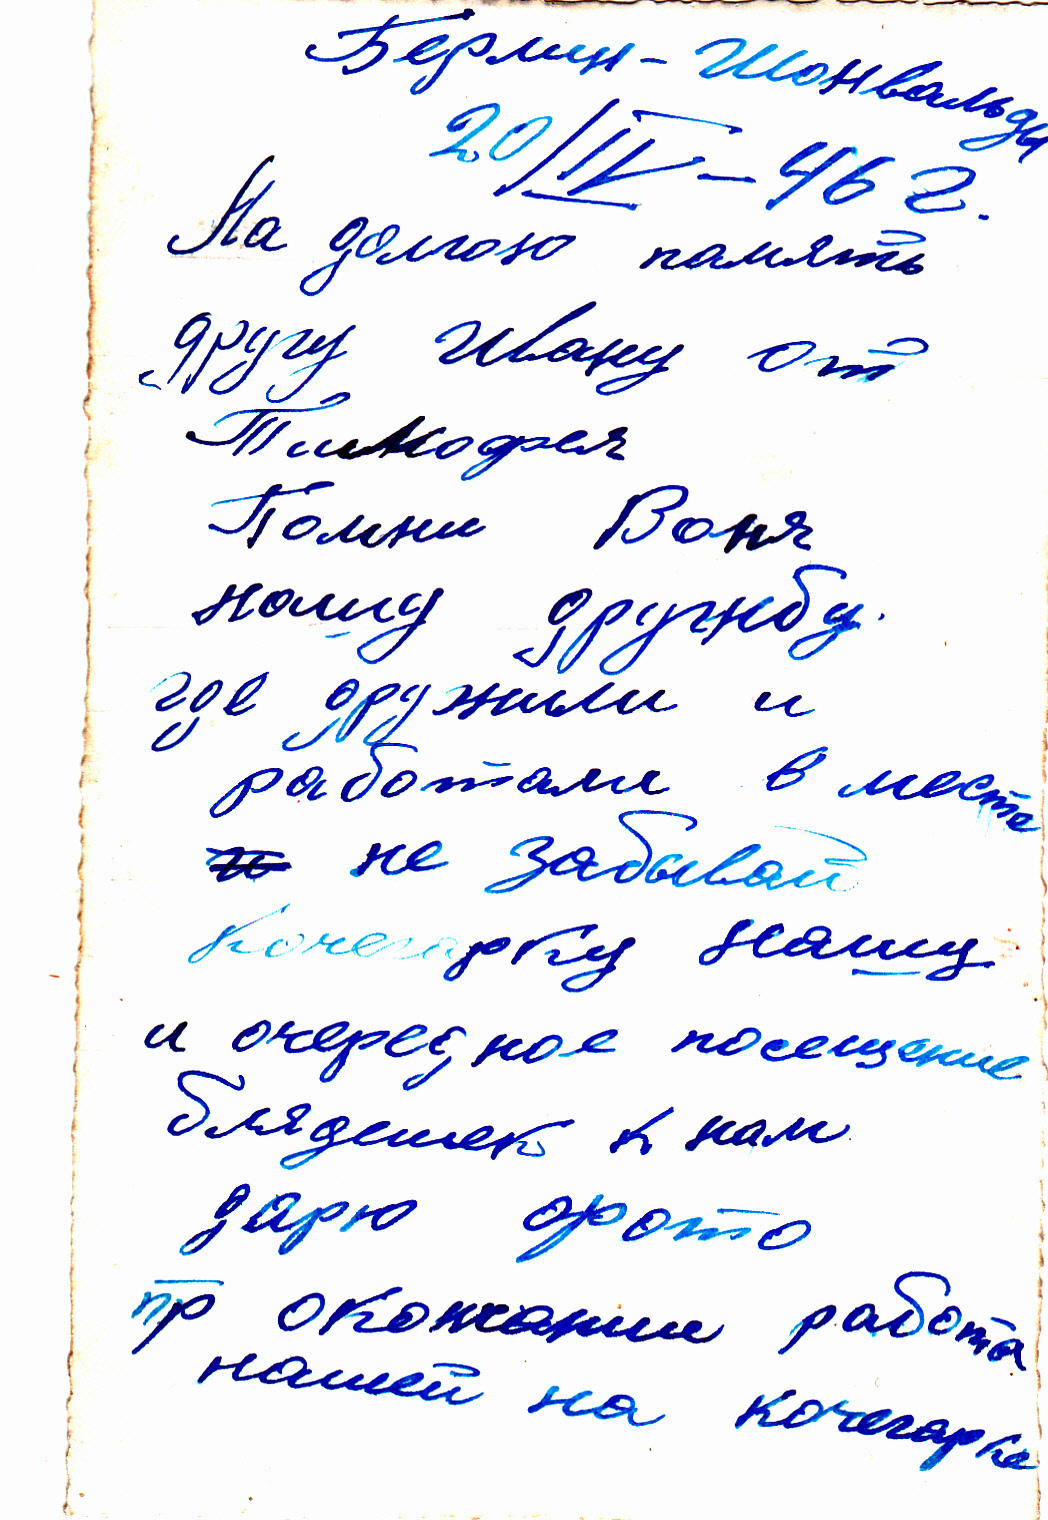 Берлин - Шонвальды
20/IV - 46 г.
На долгою память
другу Ивану от
Тимофея
Помни Воня
нашу дружбу.
где дружили и
работали в месте
не забывай
кочегарку нашу
и очередное посещение
блядешек к нам
дарю фото
пр окончании работа
нашей на кочегарке